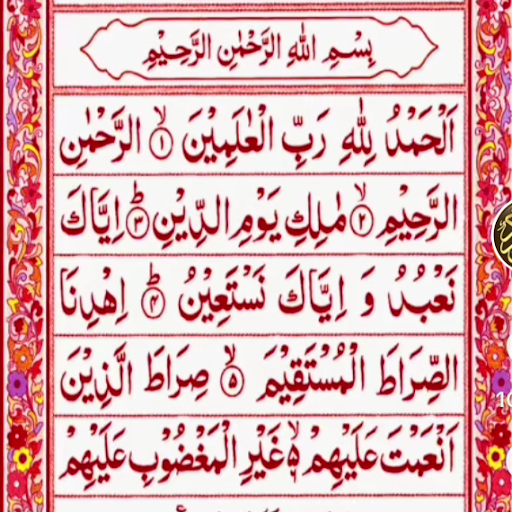 بِسْمِ اللهِ الرَّحْمٰنِ الرَّحِيْمِ
اَلْحَمْدُ لِلّٰهِ رَبِّ الْعٰلَمِيْنَ ۙ۱ الرَّحْمٰنِ
الرَّحِيْمِ ۙ۲ مٰلِكِ يَوْمِ الدِّيْنِ ؕ۳ اِيَّاكَ
نَعْبُدُ وَ اِيَّاكَ نَسْتَعِيْنُ ؕ۴ اِهْدِنَا
الصِّرَاطَ الْمُسْتَقِيْمَ ۙ۵ صِرَاطَ الَّذِيْنَ
اَنْعَمْتَ عَلَيْهِمْ ۙ۵ غَيْرِ الْمَغْضُوْبِ عَلَيْهِمْ